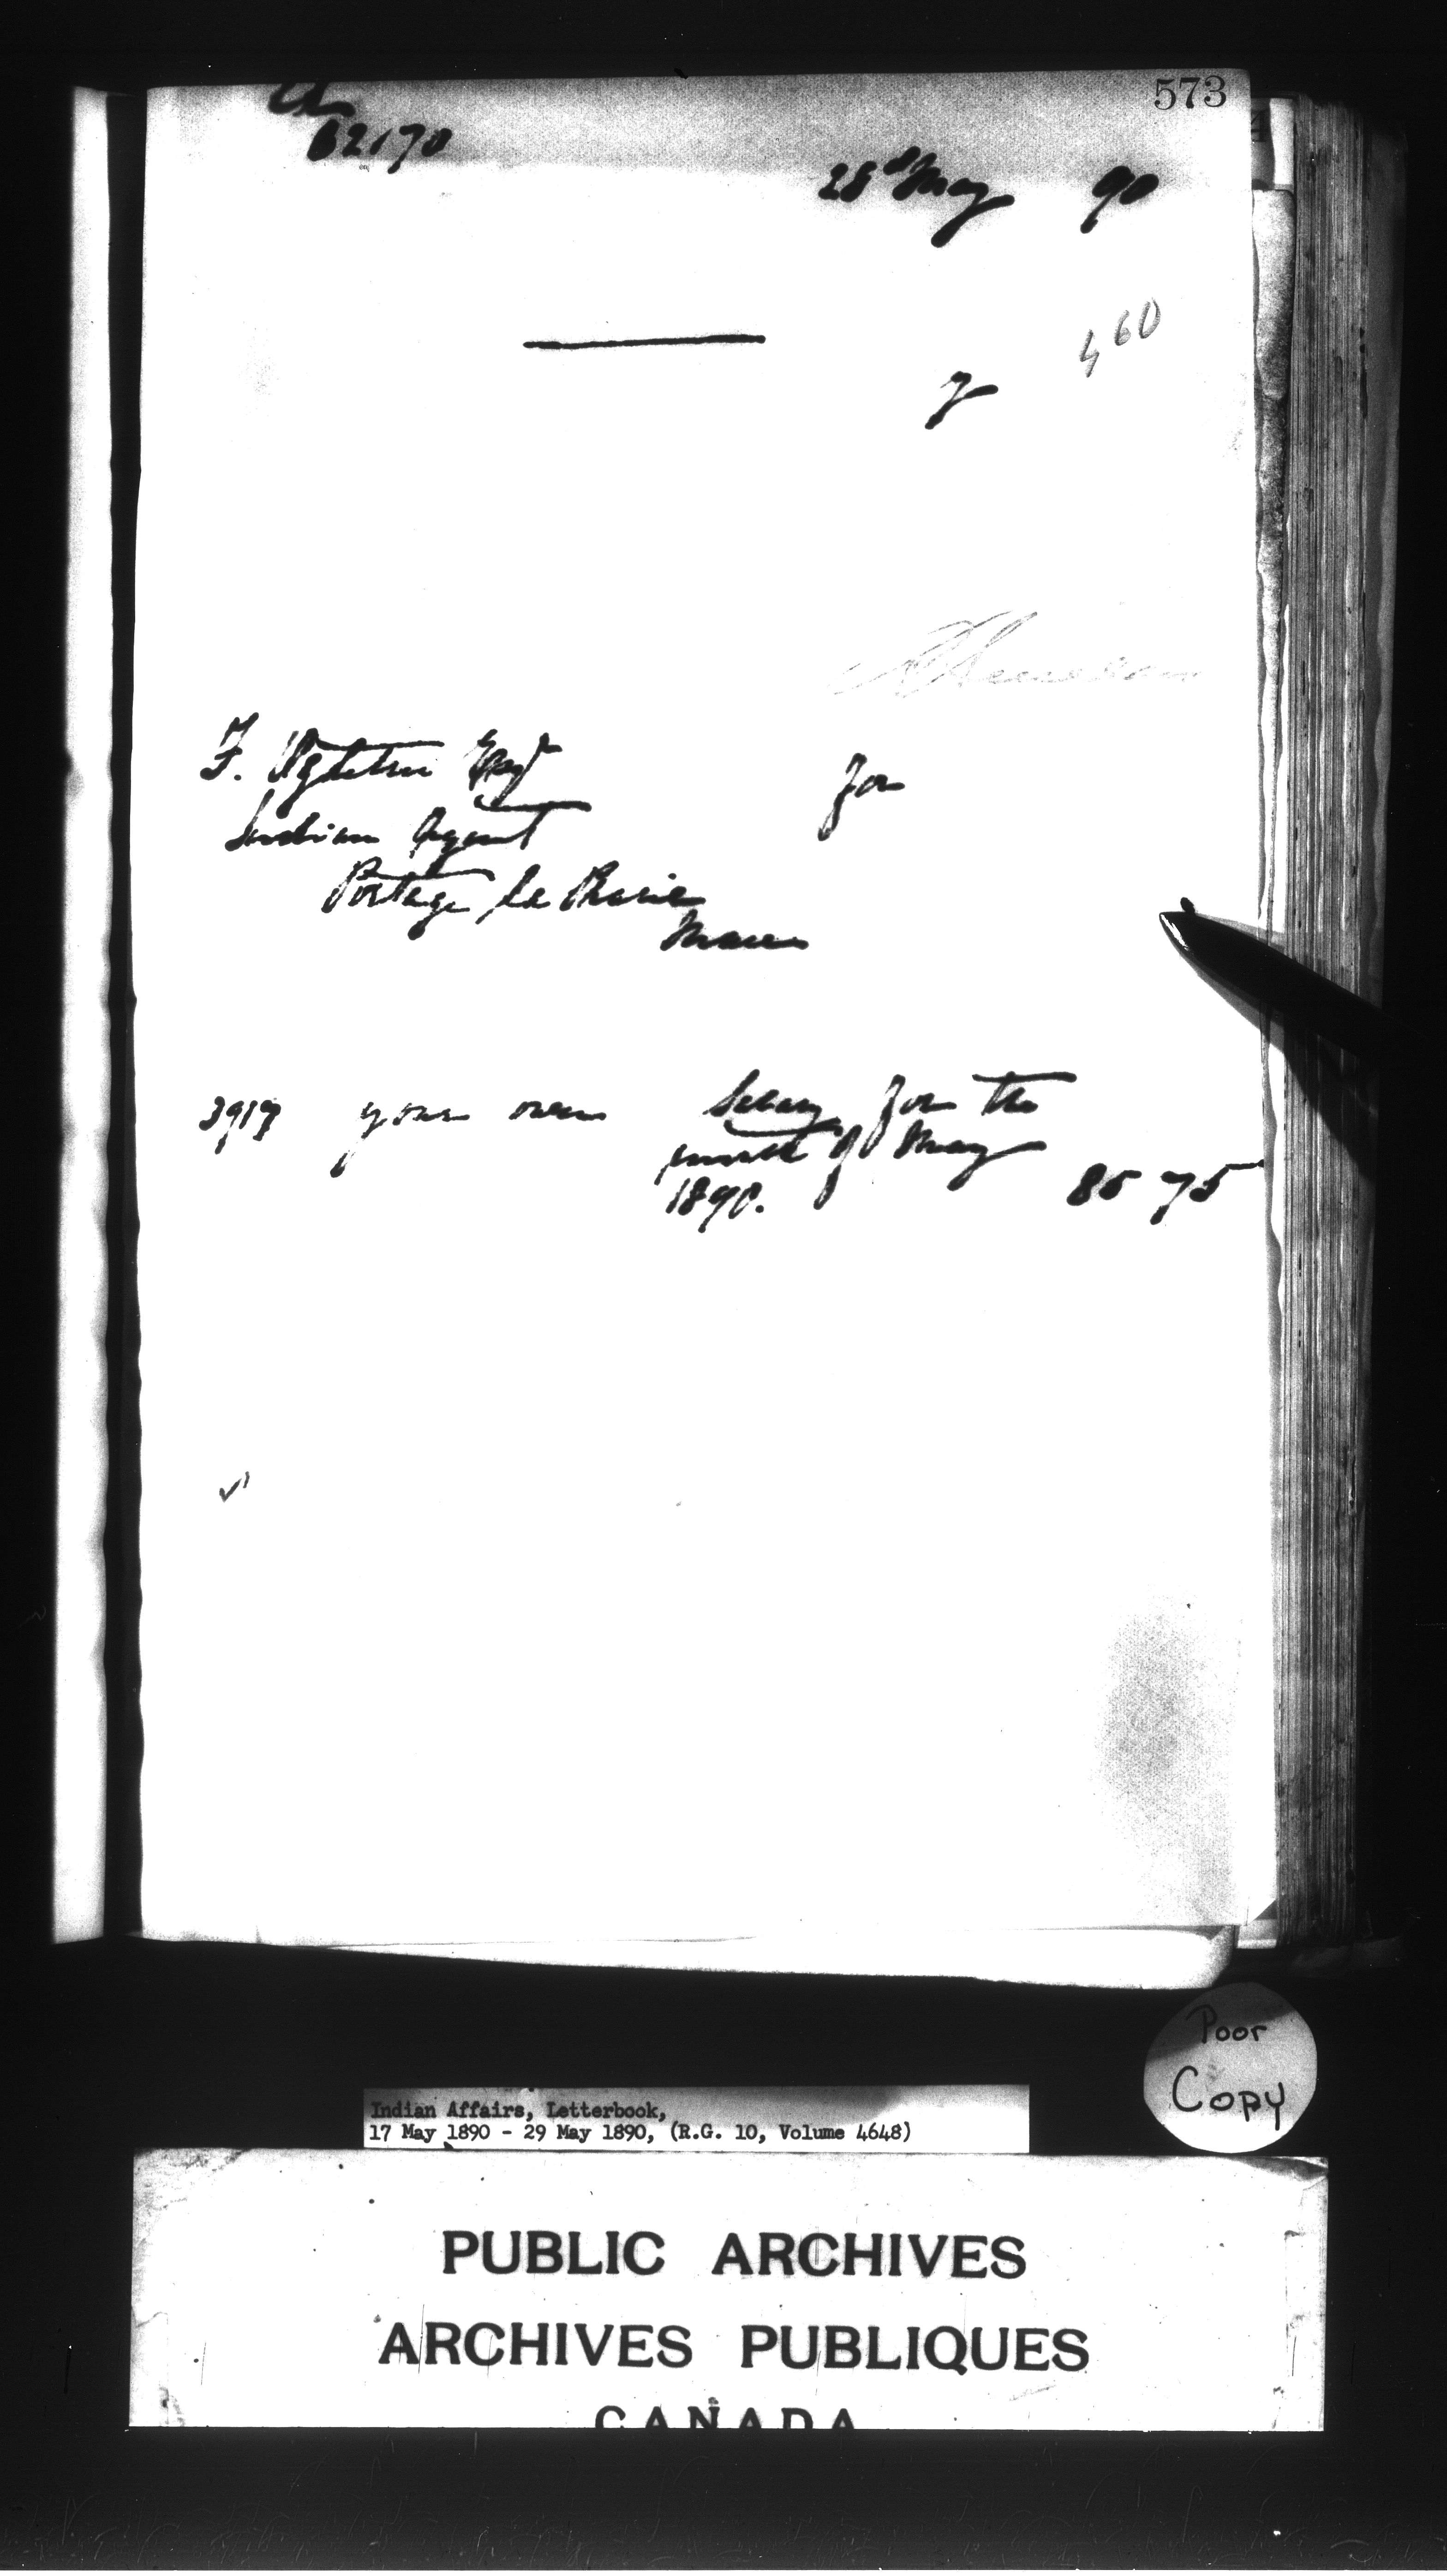 573
62170
28th May 90
460
F. Ogletree Esqr
for
Indian Agent
Portage la Prairie
Man
3917 your own Salary for the
month of May
1890. 85 75
Poor
Copy
Indian Affairs, Letterbook,
17 May 1890 - 29 May 1890, (R.G. 10, Volume 4648)
PUBLIC ARCHIVES
ARCHIVES PUBLIQUES
CANADA